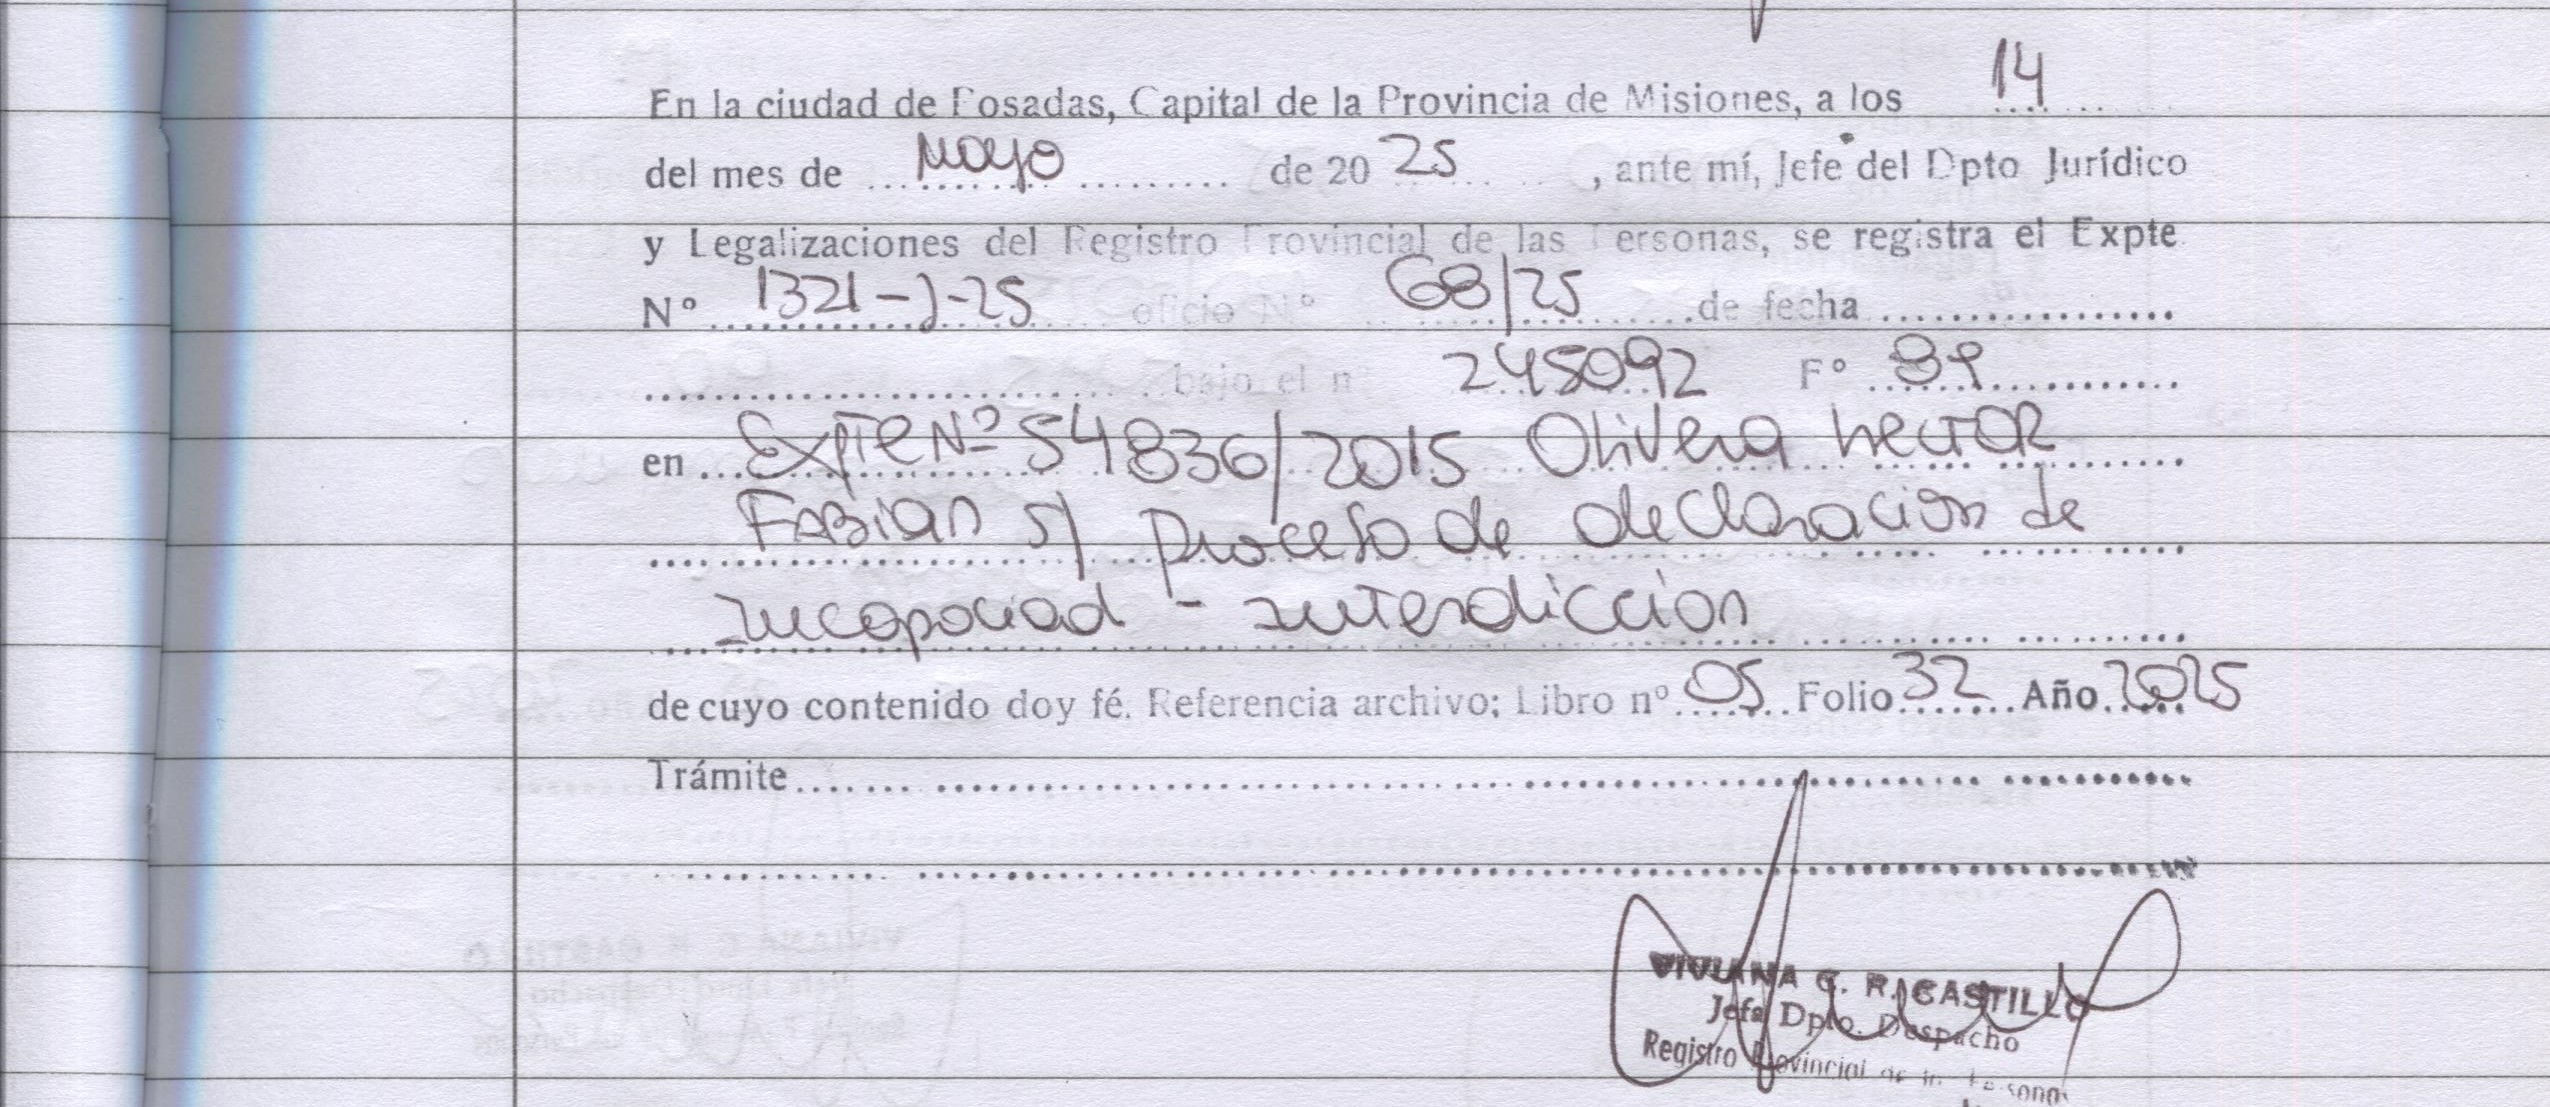 En la ciudad de Posadas, Capital de la Provincia de Misiones, a los 14
del mes de Mayo de 20 25, ante mí, Jefe del Dpto Jurídico
y Legalizaciones del Registro Provincial de las Personas, se registra el Expte
N° 1321-J-25 oficio N° 68/25 de fecha
bajo el n° 245092 F° 89
en Expte Nº 54836/2015 Olivera Hector
Fabian s/ Proceso de declaracion de
Incapaciad - Interdiccion
de cuyo contenido doy fé. Referencia archivo: Libro nº 05 Folio 32 Año 2025
Trámite
VIVIANA C. R. CASTILLO
Jefa Dpto. Despacho
Registro Provincial de las Personas